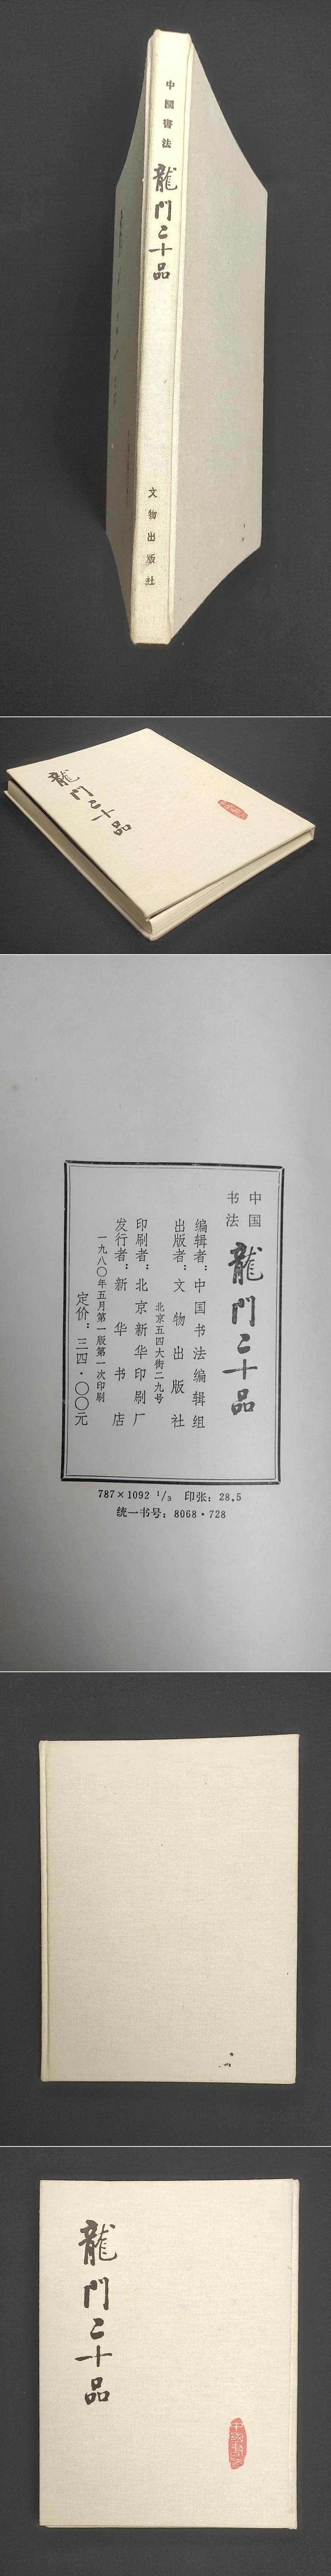 中國書法
龍門二十品
文物出版社
龍門二十品
中国
书法
龍門二十品
编辑者：中国书法编辑组
出版者：文物出版社
北京五四大街二九号
印刷者：北京新华印刷厂
发行者：新华书店
一九八〇年五月第一版第一次印刷
定价：三四·〇〇元
787×1092 1/3 印张：28.5
统一书号：8068·728
龍門二十品
中國書法